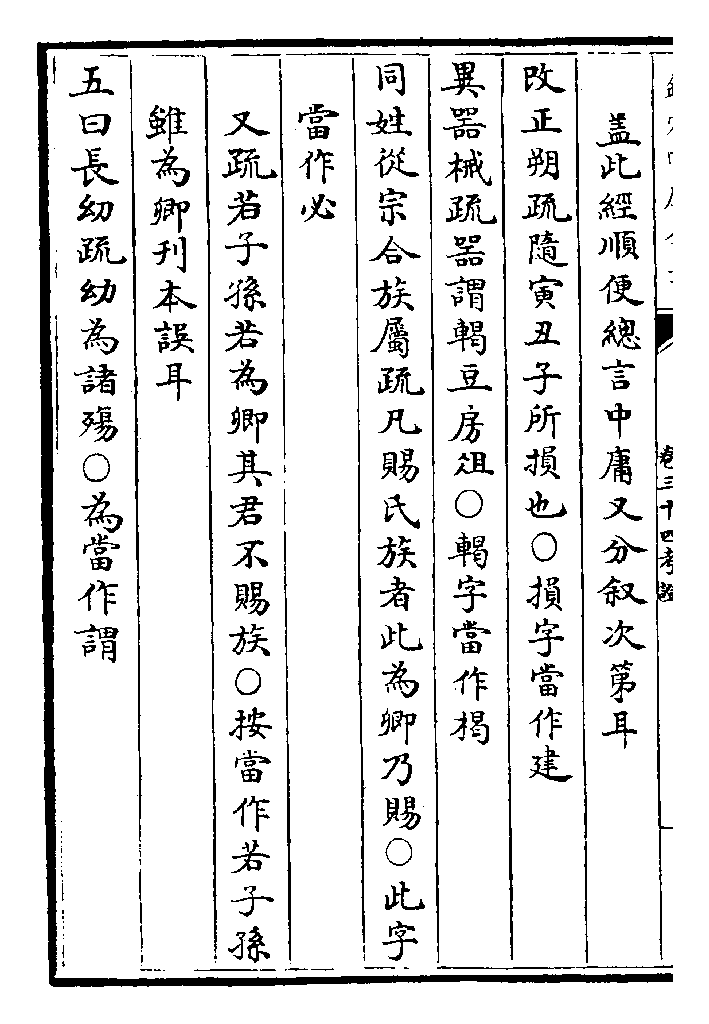 卷三十四考證
盖此經順便總言中庸又分叙次第耳
改正朔疏隨寅丑子所損也○損字當作建
異器械疏器謂輵豆房俎○輵字當作楬
同姓從宗合族屬疏凡賜氏族者此為卿乃賜○此字
當作必
又疏若子孫若為卿其君不賜族○按當作若子孫
雖為卿刊本誤耳
五曰長幼疏幼為諸殤○為當作謂